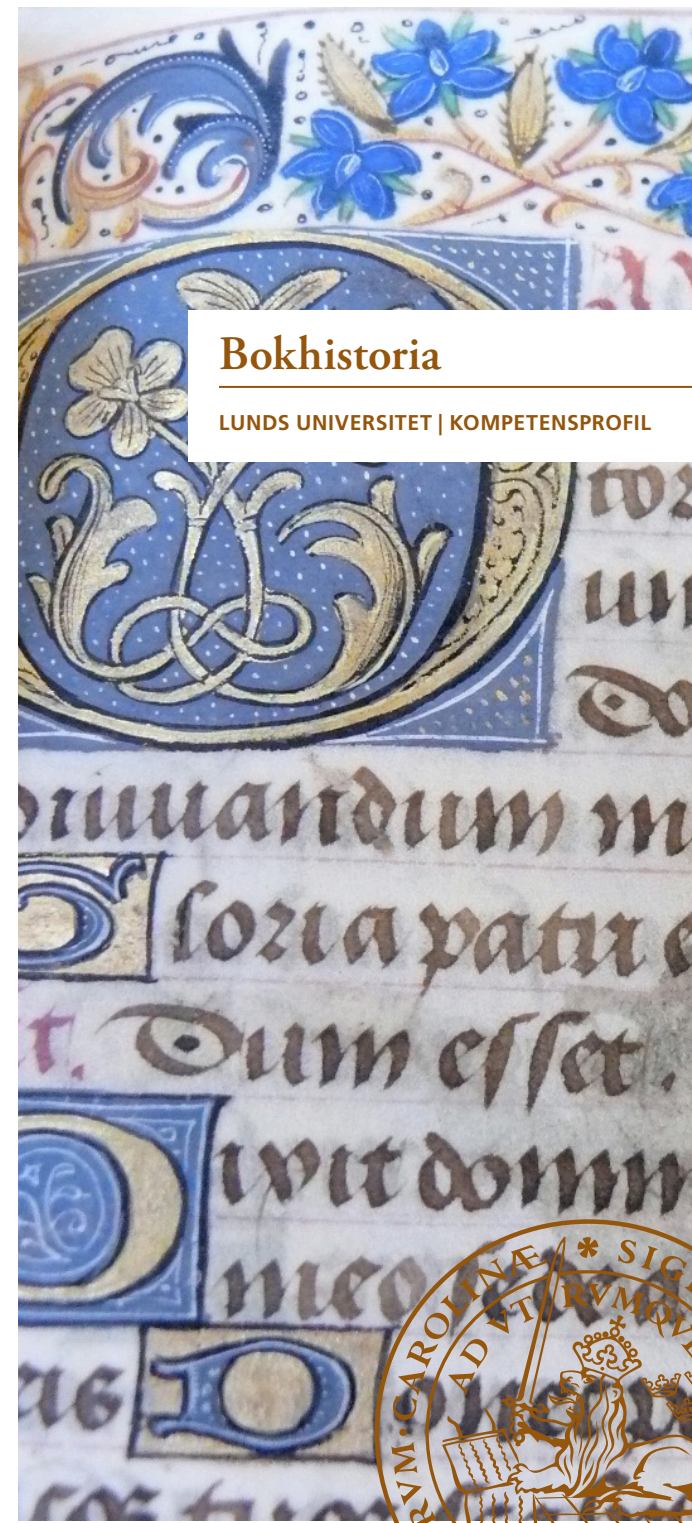 Bokhistoria
LUNDS UNIVERSITET | KOMPETENSPROFIL
tor
un
do
iuuandum m
loria patri e
t. Dum esset.
ixit domin
meo
D
RVM·CAROLINÆ * SIG
AD VTRVMQVE